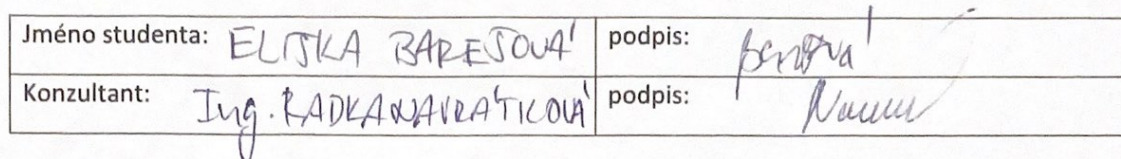 Jméno studenta: ELIŠKA BAREŠOVÁ podpis: Barešová
Konzultant: Ing. RADKA NAVRÁTILOVÁ podpis: